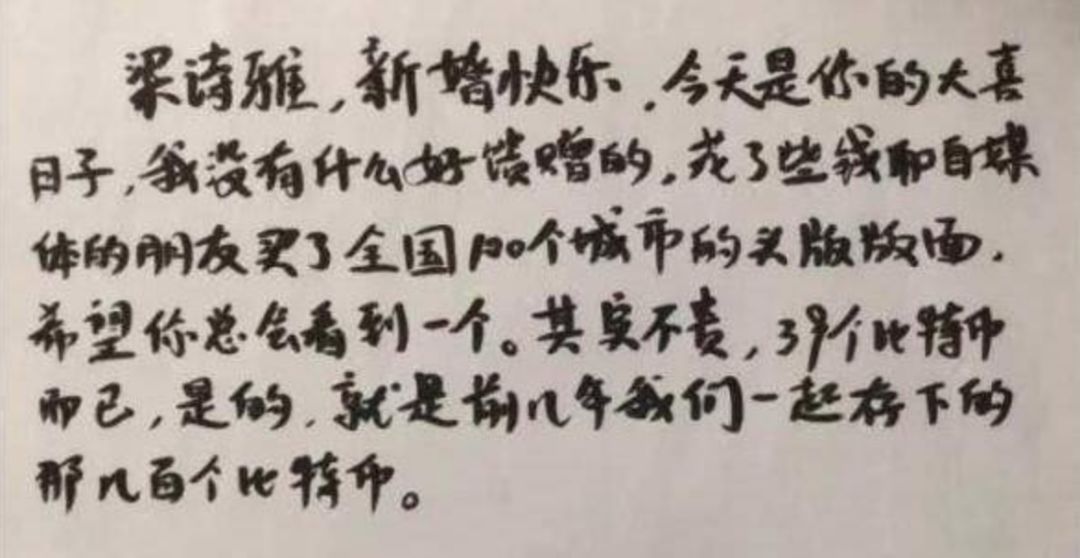 梁诗雅,新婚快乐,今天是你的大喜
日子,我没有什么好馈赠的,花了些钱和自媒
体的朋友买了全国100个城市的头版版面.
希望你总会看到一个。其实不贵,39个比特币
而已,是的,就是前几年我们一起存下的
那几百个比特币。